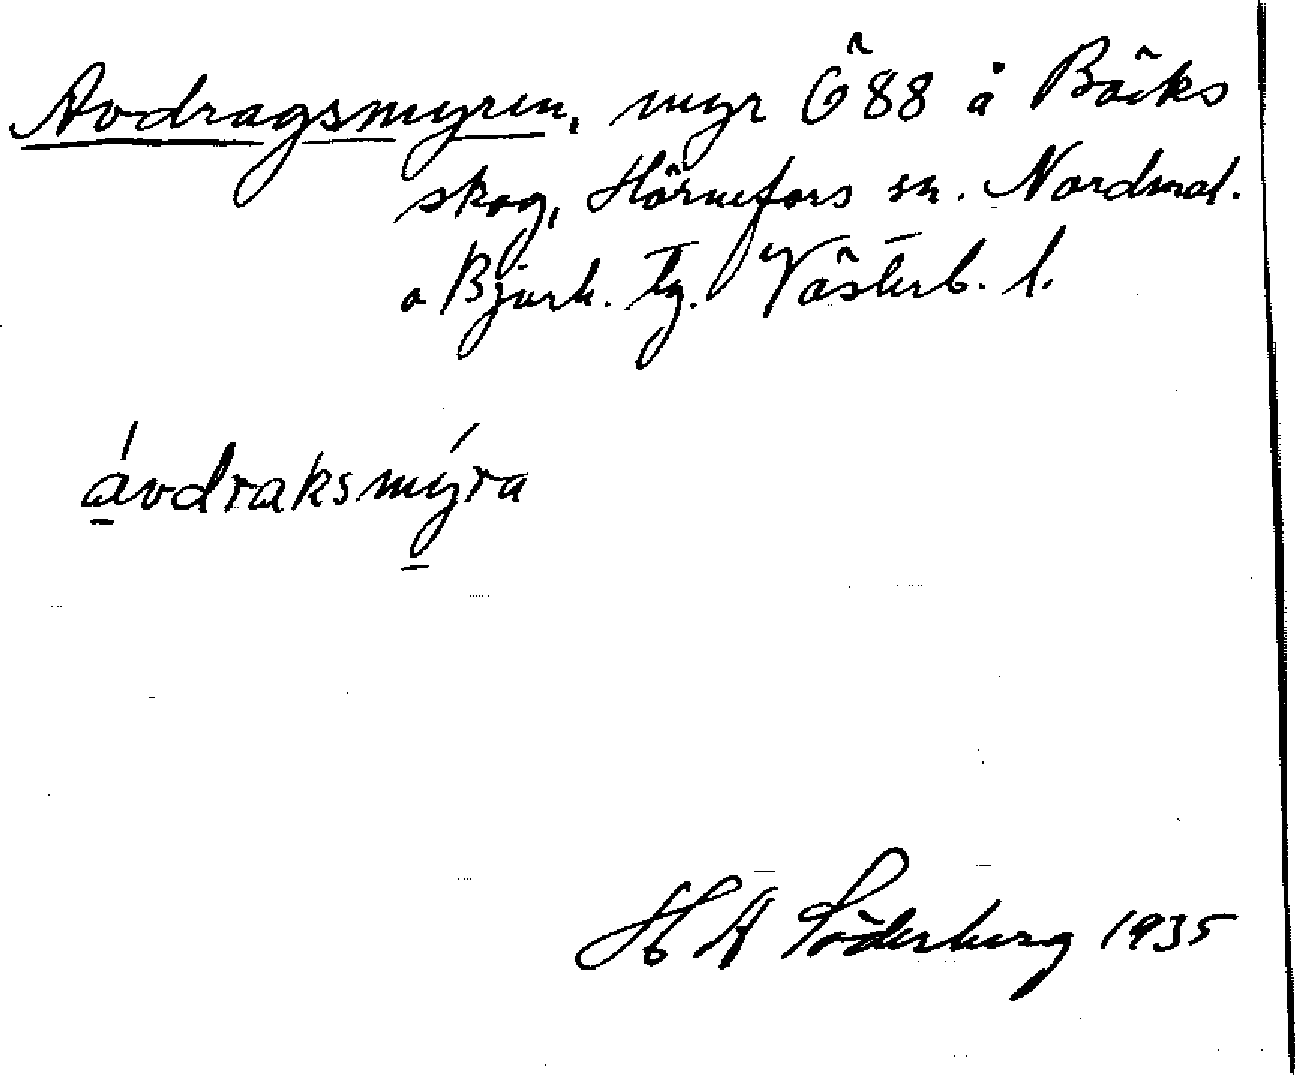 Avdragsmyren, myr Ö 88 å Bäcks
skog, Hörnefors sn. Nordmal.
o Bjurh. tg. Västerb. l.
ávdraksmýra
H A Söderberg 1935